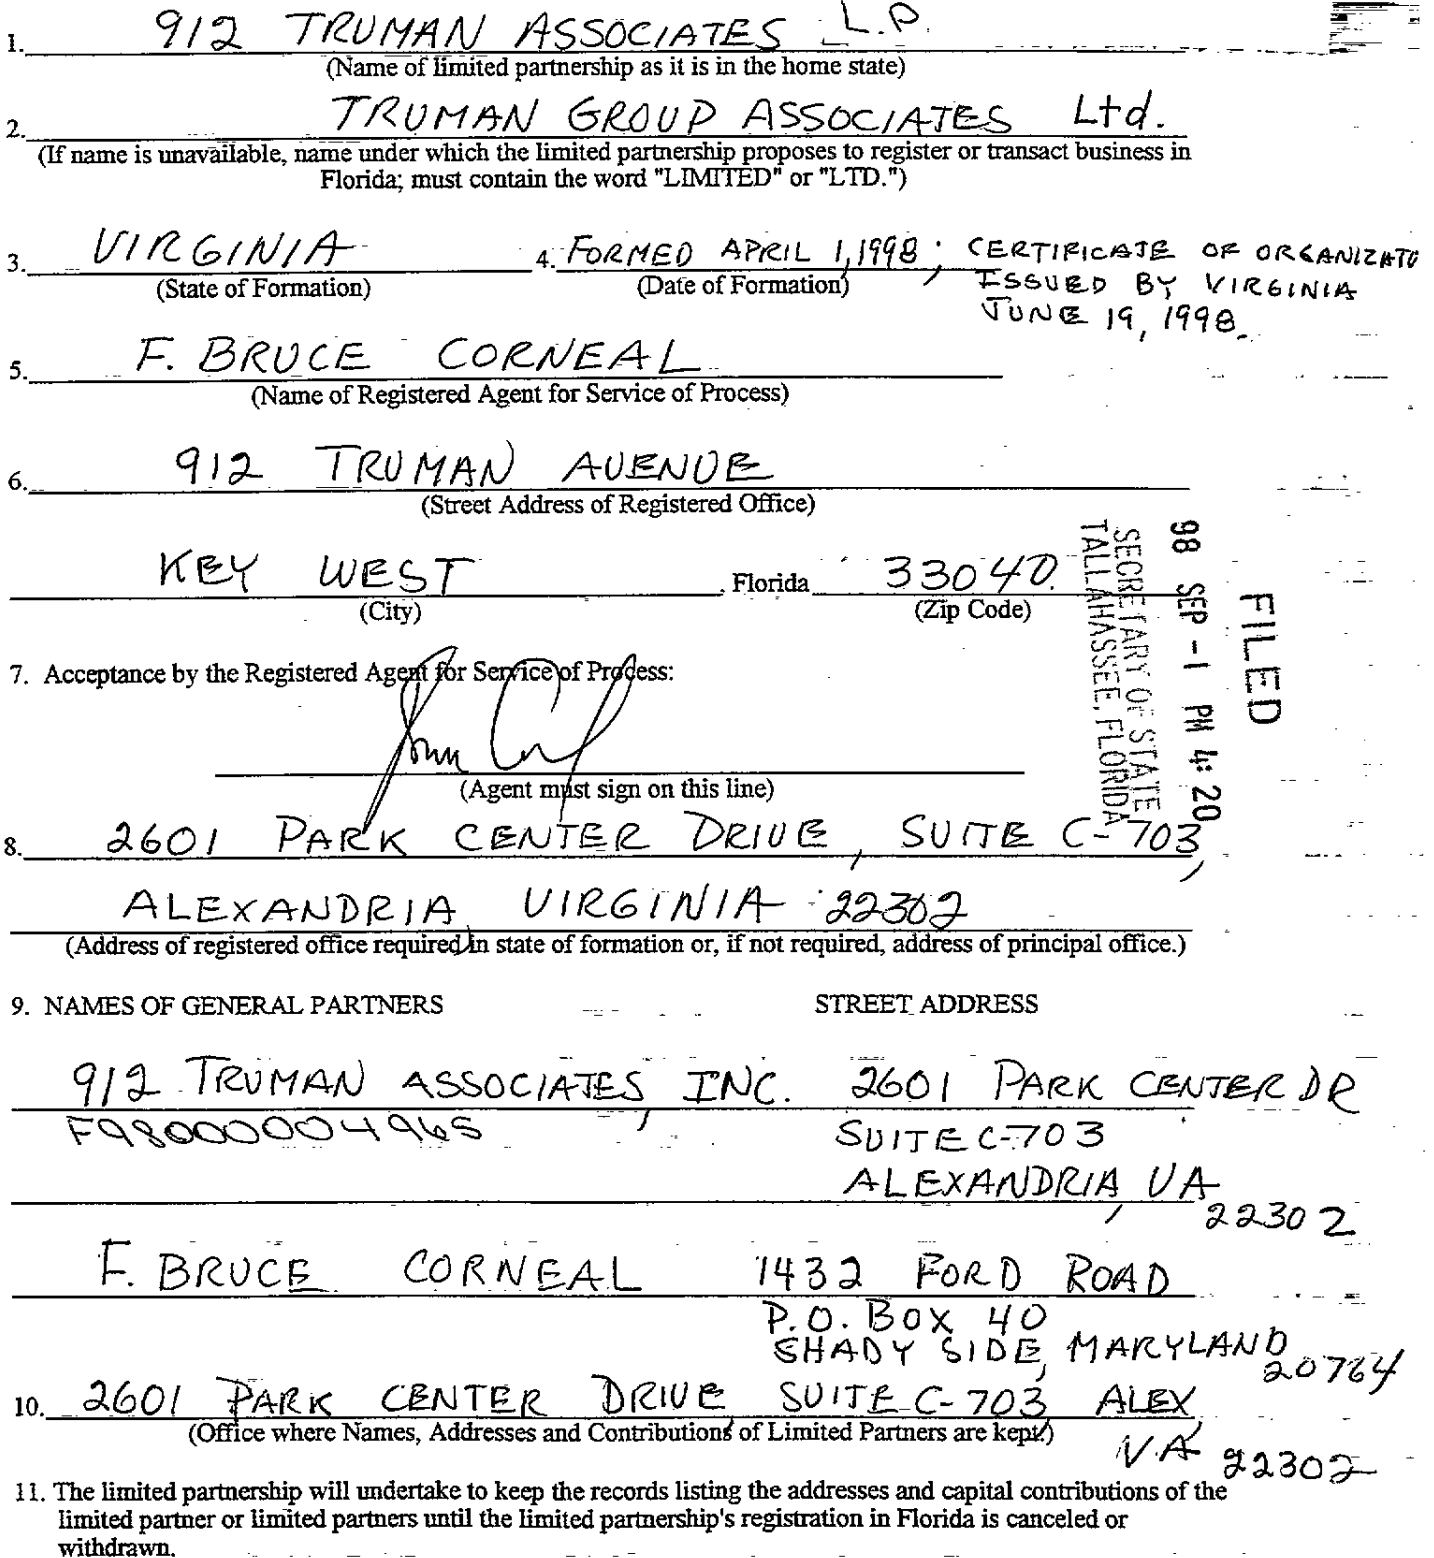 1. 912 TRUMAN ASSOCIATES L.P.
(Name of limited partnership as it is in the home state)
2. TRUMAN GROUP ASSOCIATES Ltd.
(If name is unavailable, name under which the limited partnership proposes to register or transact business in
Florida; must contain the word "LIMITED" or "LTD.")
3. VIRGINIA 4. FORMED APRIL 1, 1998; CERTIFICATE OF ORGANIZATO
(State of Formation) (Date of Formation) ISSUED BY VIRGINIA
JUNE 19, 1998.
5. F. BRUCE CORNEAL
(Name of Registered Agent for Service of Process)
6. 912 TRUMAN AVENUE
(Street Address of Registered Office)
KEY WEST, Florida 33040
(City) (Zip Code)
FILED
98 SEP -1 PM 4:20
SECRETARY OF STATE
TALLAHASSEE, FLORIDA
7. Acceptance by the Registered Agent for Service of Process:
(Agent must sign on this line)
8. 2601 PARK CENTER DRIVE, SUITE C-703,
ALEXANDRIA, VIRGINIA 22302
(Address of registered office required in state of formation or, if not required, address of principal office.)
9. NAMES OF GENERAL PARTNERS STREET ADDRESS
912 TRUMAN ASSOCIATES, INC. 2601 PARK CENTER DR
F98000004965 SUITE C-703
ALEXANDRIA, VA
22302
F. BRUCE CORNEAL 1432 FORD ROAD
P.O. BOX 40
SHADY SIDE, MARYLAND
20764
10. 2601 PARK CENTER DRIVE, SUITE C-703, ALEX,
(Office where Names, Addresses and Contributions of Limited Partners are kept.)
VA 22302
11. The limited partnership will undertake to keep the records listing the addresses and capital contributions of the
limited partner or limited partners until the limited partnership's registration in Florida is canceled or
withdrawn.